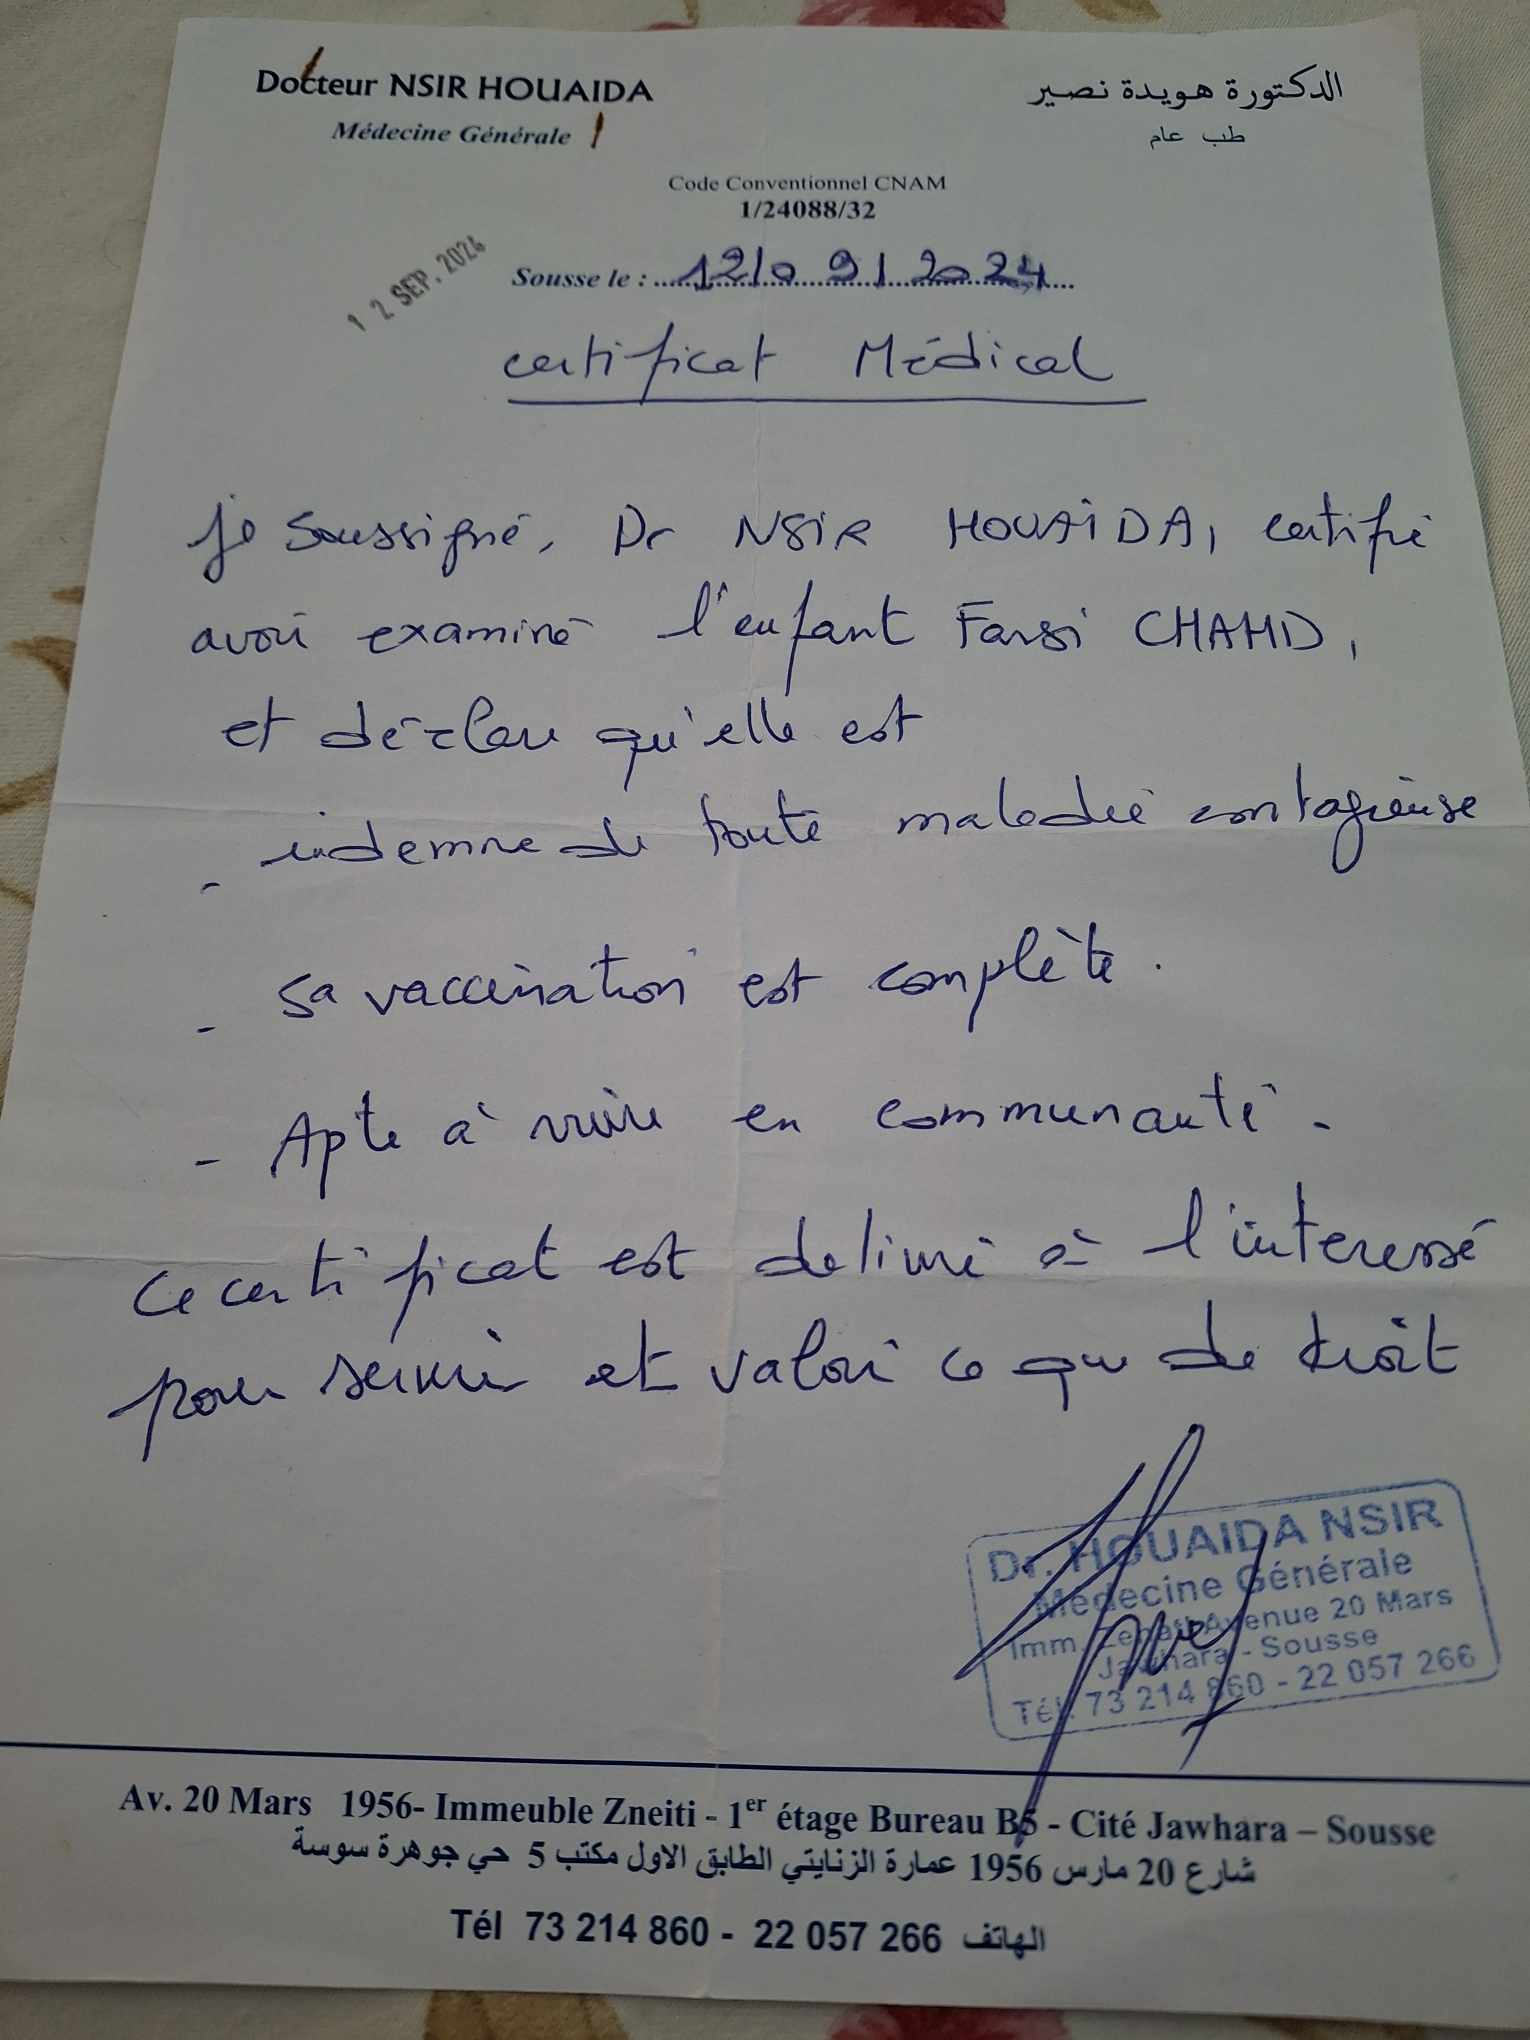 Docteur NSIR HOUAIDA
Médecine Générale
الدكتورة هويدة نصير
طب عام
Code Conventionnel CNAM
1/24088/32
12 SEP. 2024
Sousse le : 12/09/2024
certificat Médical
je soussigné, Dr NSIR HOUAIDA, certifie
avoir examiné l'enfant Farsi CHAHD,
et déclare qu'elle est
- indemne de toute maladie contagieuse
- sa vaccination est complète.
- Apte à vivre en communauté.
ce certificat est delivré à l'interessé
pour servir et valoir ce que de droit
Dr. HOUAIDA NSIR
Médecine Générale
Imm. Avenue 20 Mars
Jawhara - Sousse
Tél. 73 214 860 - 22 057 266
Av. 20 Mars 1956- Immeuble Zneiti - 1er étage Bureau B5 - Cité Jawhara – Sousse
شارع 20 مارس 1956 عمارة الزنايتي الطابق الاول مكتب 5 حي جوهرة سوسة
Tél 73 214 860 - 22 057 266 الهاتف